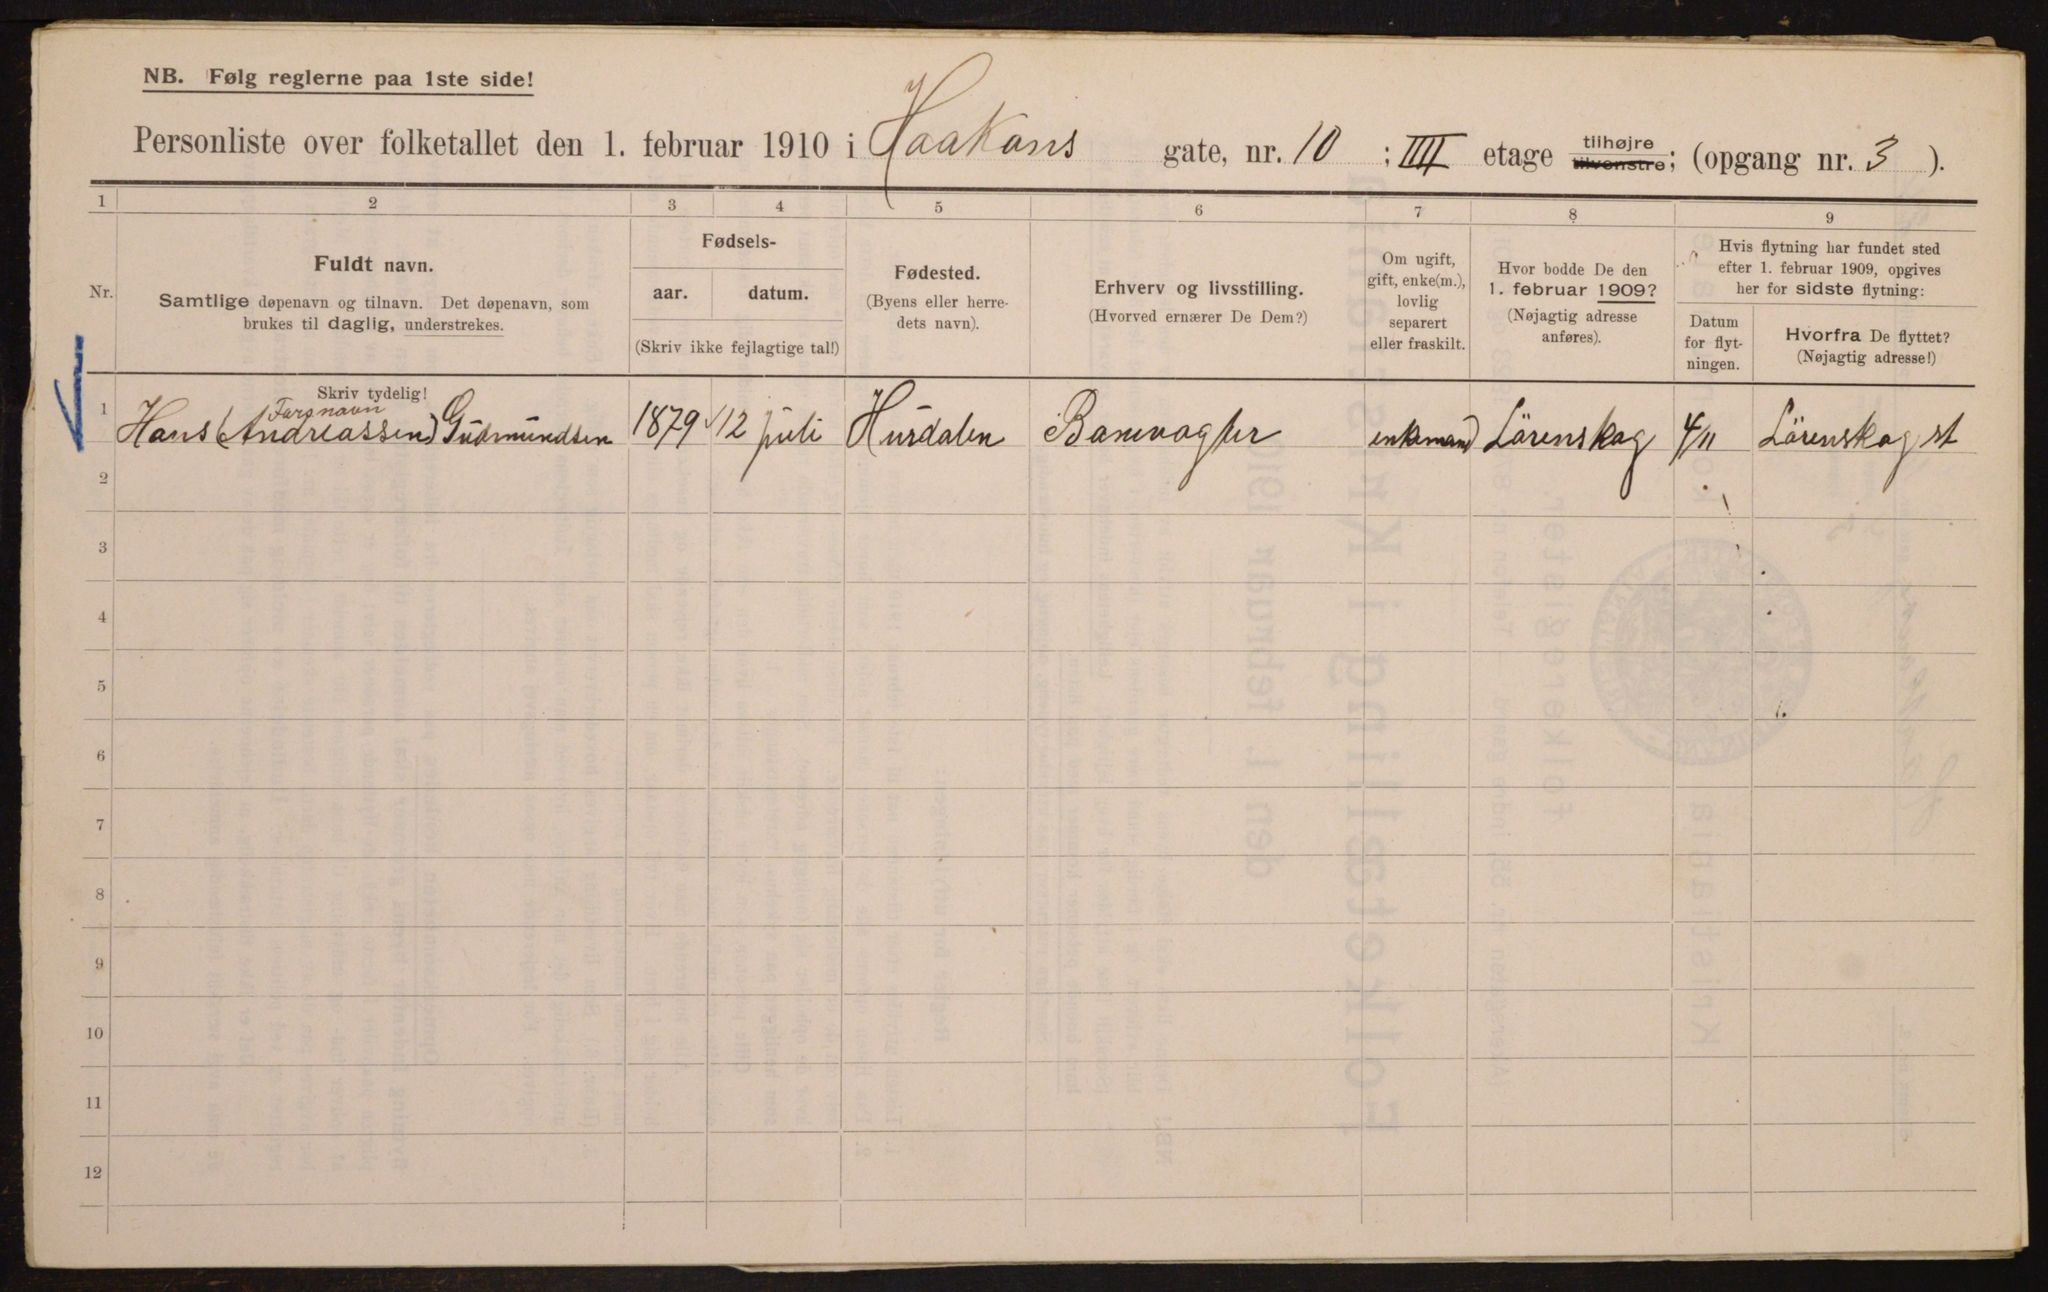 NB. Følg reglerne paa 1ste side!
Personliste over folketallet den 1. februar 1910 i Haakons gate, nr. 10 ; IIII etage tilhøjre tilvenstre; (opgang nr. 3 ).
1 2 3 4 5 6 7 8 9
Nr.
Fuldt navn.
Samtlige døpenavn og tilnavn. Det døpenavn, som
brukes til daglig, understrekes.
Skriv tydelig!
Fødsels-
aar. datum.
(Skriv ikke fejlagtige tal!)
Fødested.
(Byens eller herre-
dets navn).
Erhverv og livsstilling.
(Hvorved ernærer De Dem?)
Om ugift,
gift, enke(m.),
lovlig
separert
eller fraskilt.
Hvor bodde De den
1. februar 1909?
(Nøjagtig adresse
anføres).
Hvis flytning har fundet sted
efter 1. februar 1909, opgives
her for sidste flytning:
Datum
for flyt-
ningen.
Hvorfra De flyttet?
(Nøjagtig adresse!)
Farsnavn
1 Hans (Andreassen) Gudmundsen 1879 12 juli Hurdalen Banevogter enkemand Lörenskog 4/11 Lörenskog st
2
3
4
5
6
7
8
9
10
11
12